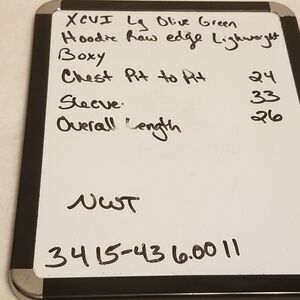 XCVI Lg Olive Green
Hoodie Raw edge Lighweight
Boxy
Chest Pit to Pit 24
Sleeve: 33
Overall Length 26
NWT
3415-436.0011